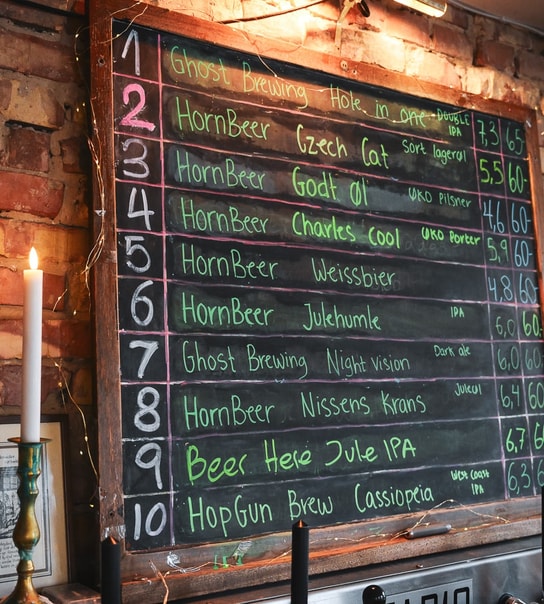 1 Ghost Brewing Hole in one DOUBLE IPA 7,3 65
2 HornBeer Czech Cat Sort lagerøl 5,5 60-
3 HornBeer Godt Øl ØKO Pilsner 4,6 60-
4 HornBeer Charles Cool ØKO Porter 5,9 60-
5 HornBeer Weissbier 4,8 60-
6 HornBeer Julehumle IPA 6,0 60.
7 Ghost Brewing Night vision Dark ale 6,0 60
8 HornBeer Nissens Krans Juleøl 6,4 60
9 Beer Here Jule IPA 6,7
10 HopGun Brew Cassiopeia West Coast IPA 6,3